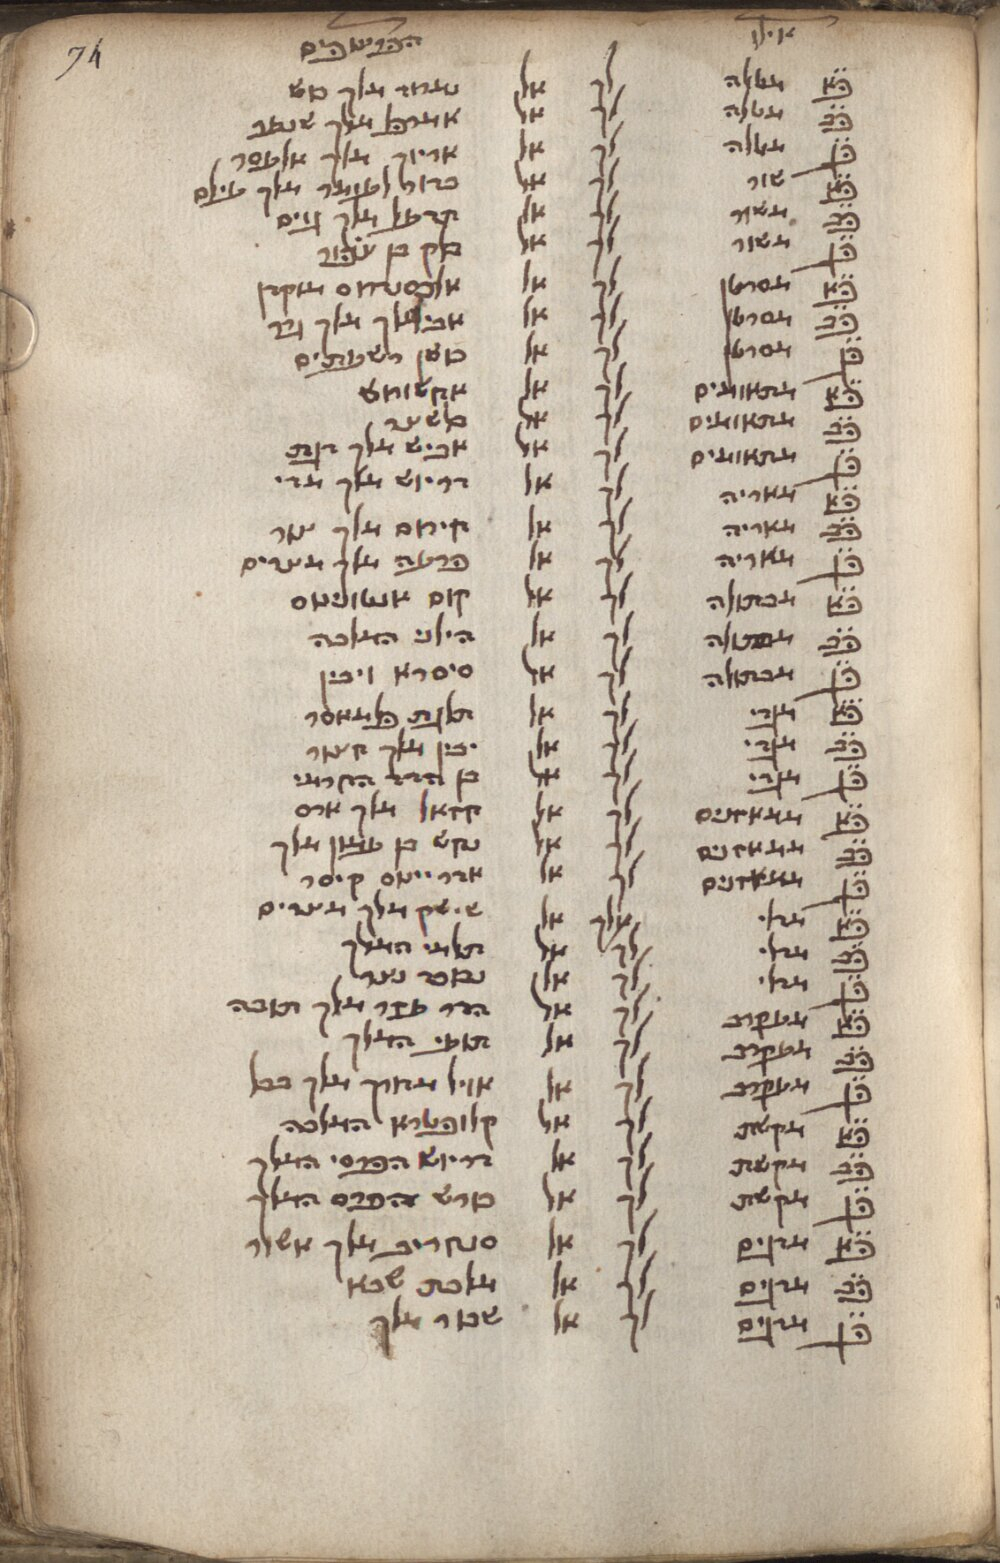 74
אילו
פן א מטלה לך אל נמרוד מלך כוש
פן ב מטלה לך אל אמרפל מלך שנער
פן ג מטלה לך אל אריוך מלך אלסר
פן א שור לך אל כדור לעומר מלך עילם
פן ב משור לך אל תדעל מלך גוים
פן ג משור לך אל בלק בן צפור
פן א מסרטן לך אל אלכסנדרוס מוקדון
פן ב מסרטן לך אל אבימלך מלך גרר
פן ג מסרטן לך אל כושן רשעתים
פן א מתאומים לך אל אחשורוש
פן ב מתאומים לך אל בלשצר
פן ג מתאומים לך אל אכיש מלך גת
פן א מאריה לך אל דריוש מלך מדי
פן ב מאריה לך אל חירום מלך צור
פן ג מאריה לך אל פרעה מלך מצרים
פן א מבתולה לך אל אנטונינוס
פן ב מבתולה לך אל הילני המלכה
פן ג מבתולה לך אל סיסרא ויבין
פן א מגדי לך אל תגלת פלנאסר
פן ב מגדי לך אל יבין מלך חצור
פן ג מגדי לך אל בן הדד הארמי
פן א ממאזנים לך אל חזאל מלך ארם
פן ב ממאזנים לך אל נחש בן עמון מלך
פן ג ממאזנים לך אל אדריינוס קיסר
פן א מדלי לך אל שישק מלך מצרים
פן ב מדלי לך אל תלמי המלך
פן ג מדלי לך אל נבוכד נצר
פן א מעקרב לך אל הדד עזר מלך צובה
פן ב מעקרב לך אל תועי המלך
פן ג מעקרב לך אל אויל מרודך מלך בבל
פן א מקשת לך אל קלופטרא המלכה
פן ב מקשת לך אל דריוש הפרסי המלך
פן ג מקשת לך אל כורש המלך
פן א מדגים לך אל סנחריב מלך אשור
פן ב מדגים לך אל מלכת שבא
פן ג מדגים לך אל שבור מלך